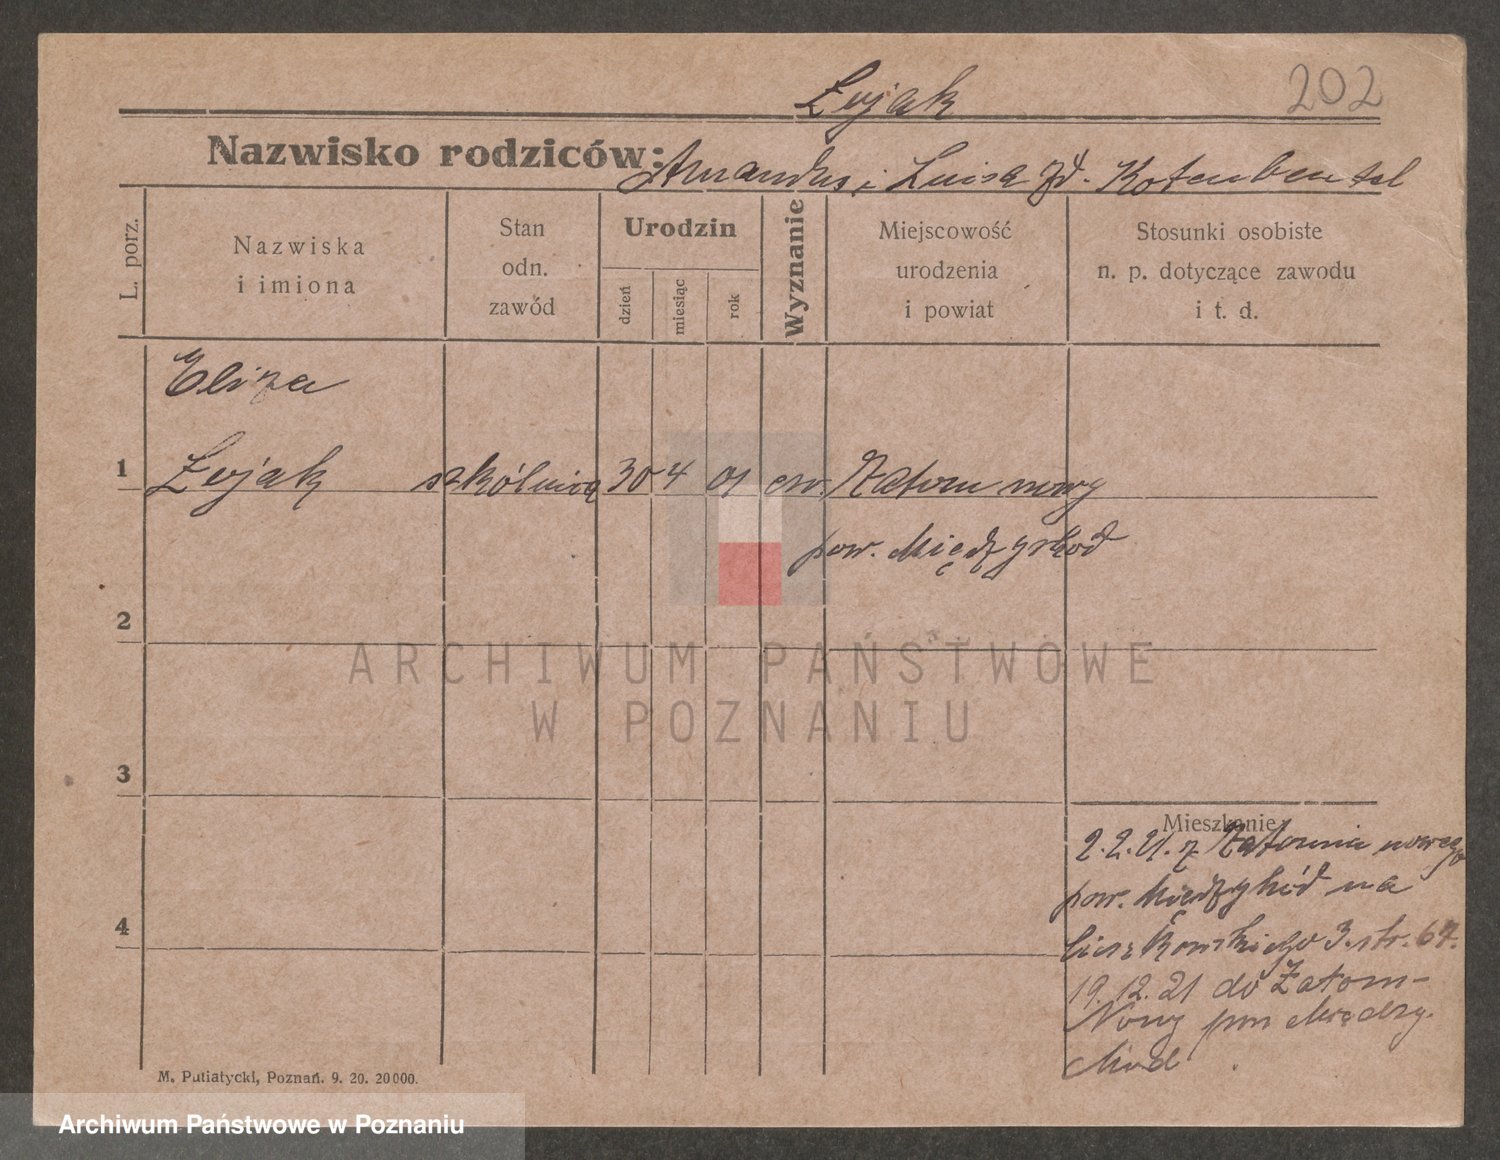 202
Łujak
Nazwisko rodziców: Amandus i Luisa zd. Kotenbeutel
L. porz.
Nazwiska
i imiona
Stan
odn.
zawód
Urodzin
dzień
miesiąc
rok
Wyznanie
Miejscowość
urodzenia
i powiat
Stosunki osobiste
n. p. dotyczące zawodu
i t. d.
Eliza
1 Łujak 30 4 01 ew. Zatom nowy
pow. Międzychod
2
3
4
Mieszkanie:
2.2.21. z Zatomia nowego
pow. Międzychód na
3. str. 67.
19.12.21 do Zatom-
Nowy pow Między-
chod
M. Putiatycki, Poznań. 9. 20. 20000.
ARCHIWUM PAŃSTWOWE
W POZNANIU
Archiwum Państwowe w Poznaniu